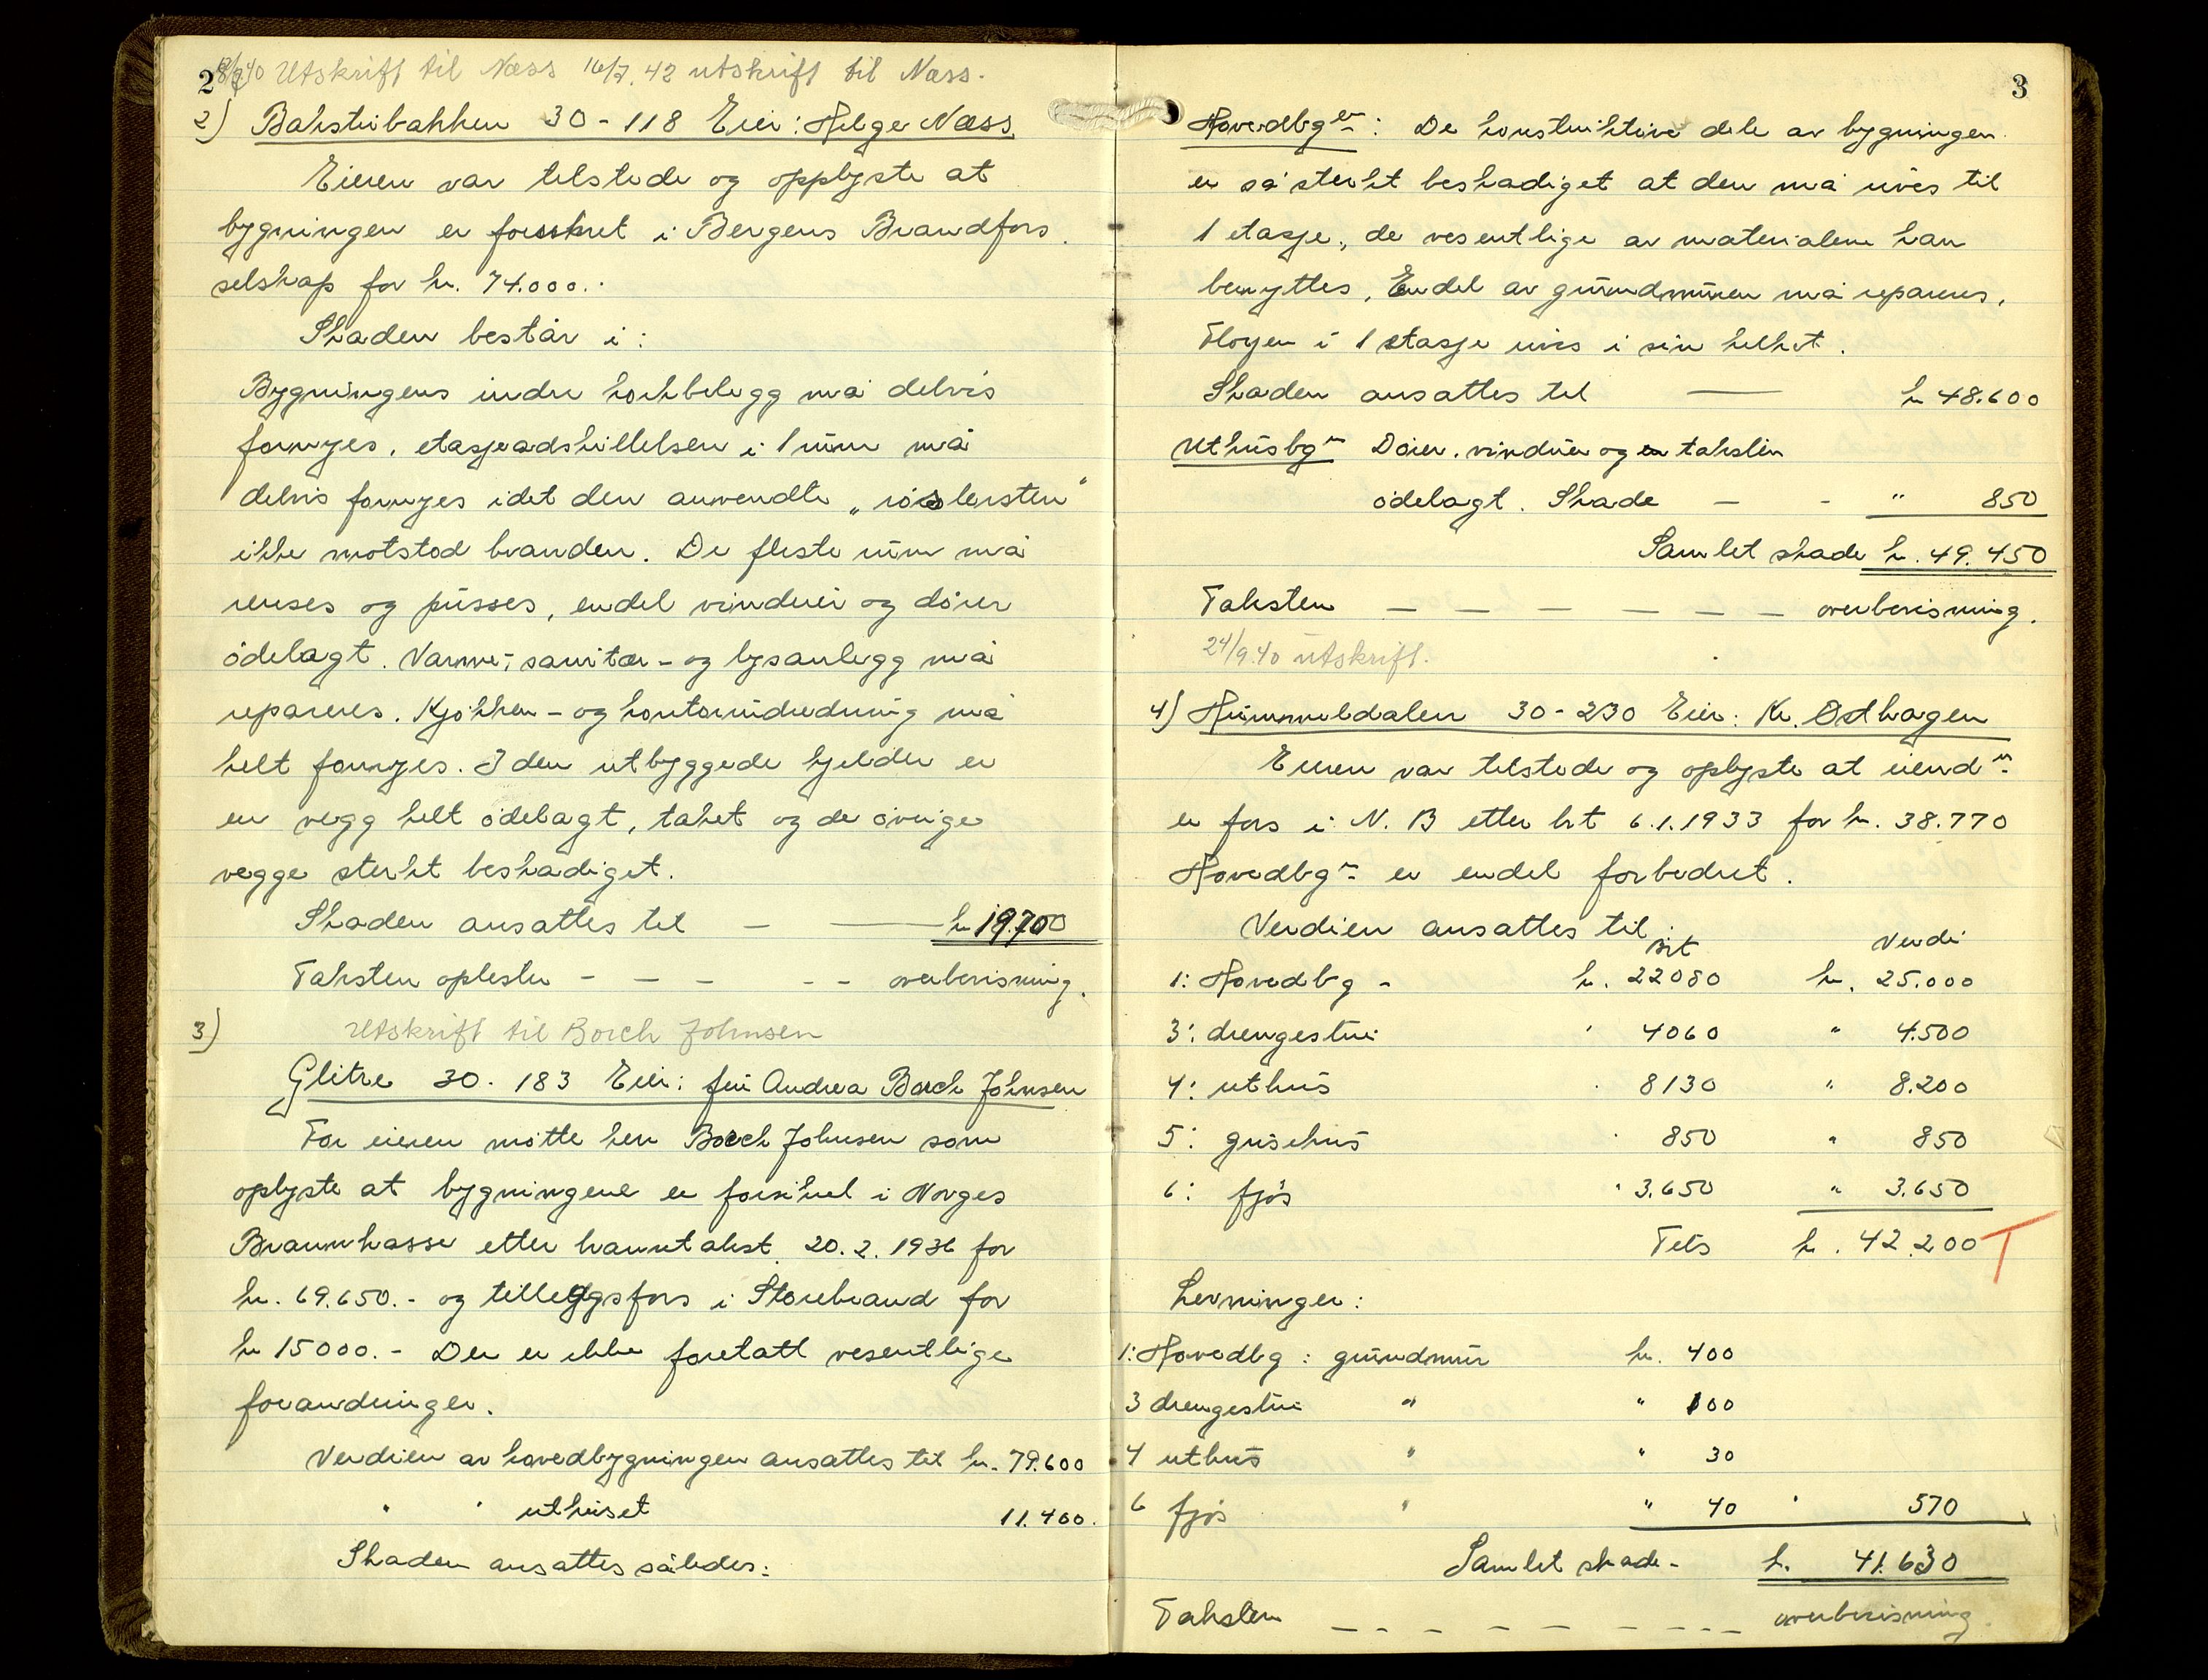 2
8/7.40 Utskrift til Næss 16/7.42 utskrift til Næss.
2) Bakstubakken 30-118 Eier: Helge Næss
Eieren var tilstede og opplyste at
bygningen er forsikret i Bergens Brandfors.
selskap for kr. 74.000.-
Skaden består i:
Bygningens indre korkbelegg må delvis
fornyes, etasjeadskillelsen i 1 rum må
delvis fornyes idet den anvendte "
ikke motstod branden. De fleste rum må
renses og pusses, endel vinduer og dører
ødelagt. Varme-, sanitær- og lysanlegg må
repareres. Kjøkken- og kontorinnredning må
helt fornyes. I den utbyggede kjelder er
en vegg helt ødelagt, taket og de øvrige
vegge sterkt beskadiget.
Skaden ansattes til — —— kr 19.700
Taksten oplestes - — — - - overbevisning.
3) Utskrift til Borch Johnsen
Glitre 30. 183 Eier: fru Andrea Borch Johnsen
For eieren møtte herr Borch Johnsen som
oplyste at bygningene er forsikret i Norges
Brannkasse etter branntakst 20.2.1936 for
kr. 69.650.- og tilleggsfors i Storebrand for
kr 15000.- Der er ikke foretatt vesentlige
forandringer.
Verdien av hovedbygningen ansattes til kr. 79.600
" " uthuset 11.400.
Skaden ansattes således:
3
Hovedbgen: De konstruktive dele av bygningen
er så sterkt beskadiget at den må rives til
1 etasje, de vesentlige av materialene kan
benyttes, Endel av grundmuren må repareres.
Fløyen i 1 etasje rives i sin helhet.
Skaden ansattes til —— kr 48.600
Uthusbgn Dører, vinduer og takstein
ødelagt. Skade — - " 850
Samlet skade kr. 49.450
Taksten — — — — — — — overbevisning.
24/9.40 utskrift.
4) Hummeldalen 30-230 Eier: Kr. Østhagen
Eieren var tilstede og oplyste at eiendn
er fors i N. B etter brt 6.1.1933 for kr. 38.770
Hovedbgn er endel forbedret.
Verdien ansattes til:
Brt Verdi
1: Hovedbg - kr. 22080 kr. 25.000
3: drengestue " 4060 " 4.500
4: uthus " 8130 " 8.200
5: grisehus " 850 " 850
6: fjøs " 3.650 " 3.650
Tils kr. 42.200
Levninger:
1: Hovedbg: grundmur kr. 400
3 drengestue " " 100
4 uthus " " 30
6 fjøs " " 40 " 570
Samlet skade - kr. 41.630
Taksten — - - — — - - - — overbevisning